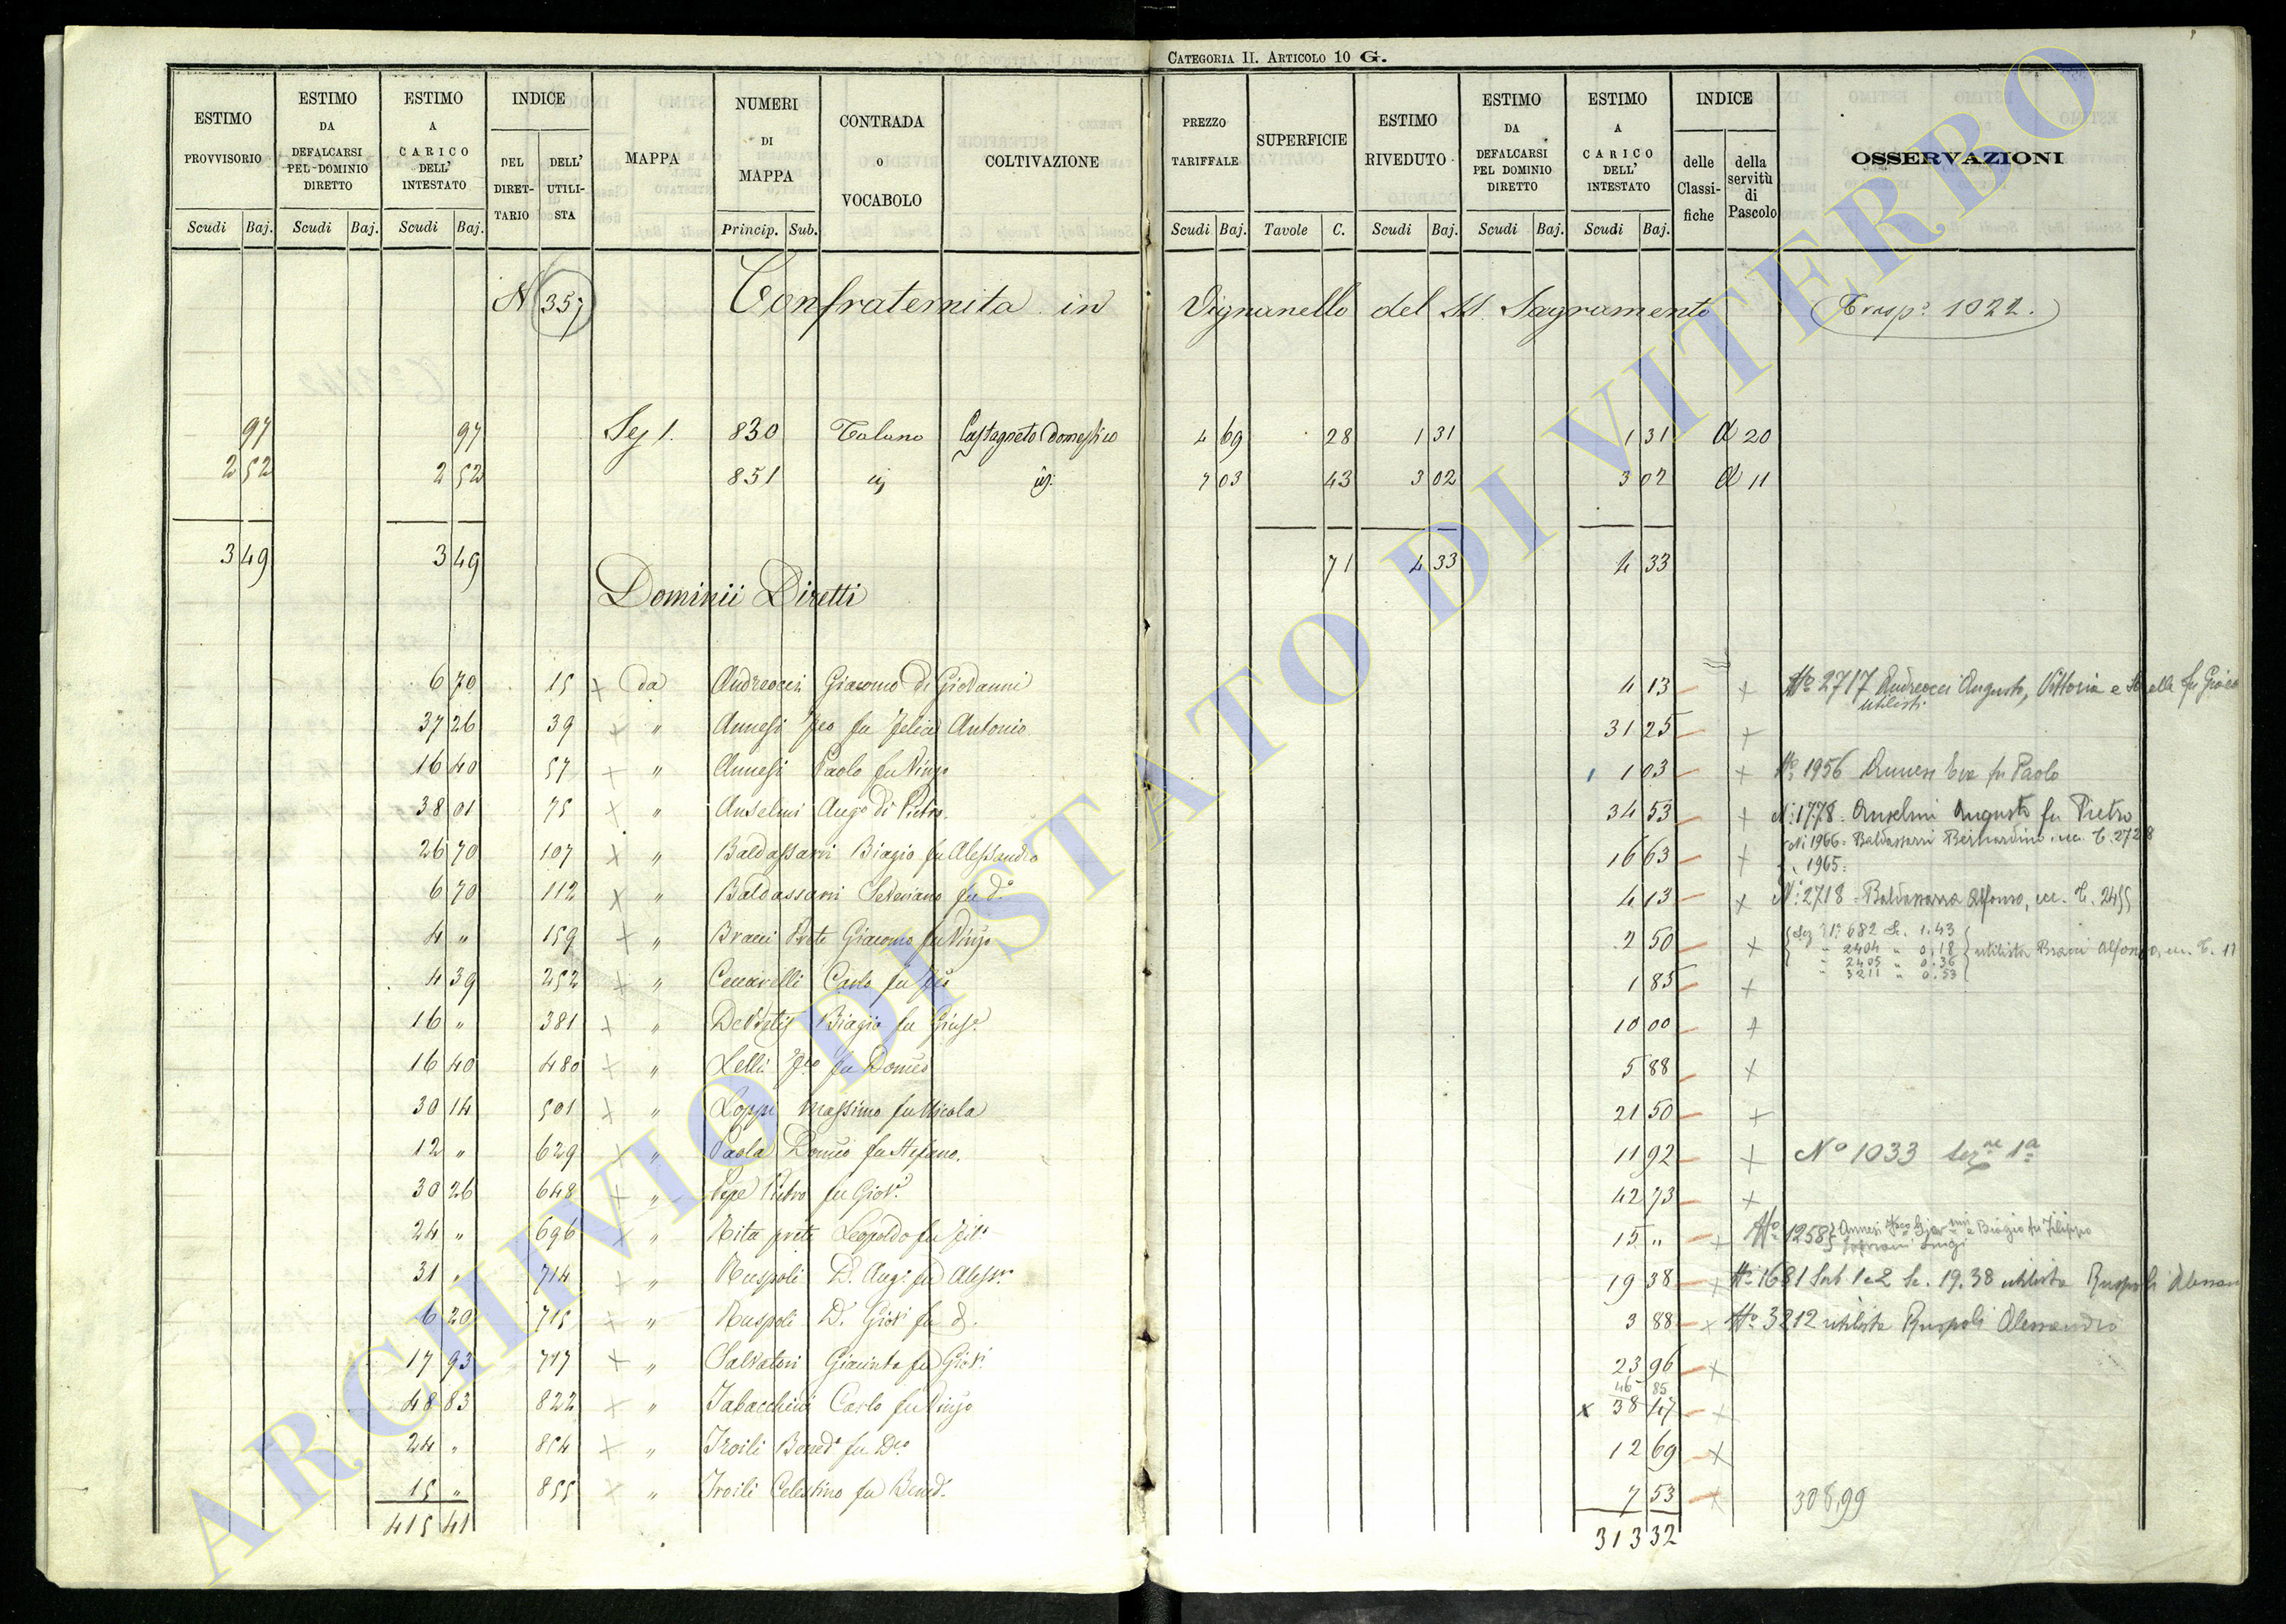 CATEGORIA II. ARTICOLO 10 G.
ESTIMO PROVVISORIO Scudi Baj.
ESTIMO DA DEFALCARSI PEL DOMINIO DIRETTO Scudi Baj.
ESTIMO A CARICO DELL' INTESTATO Scudi Baj.
INDICE DEL DIRETTARIO DELL' UTILISTA
MAPPA
NUMERI DI MAPPA Princip. Sub.
CONTRADA O VOCABOLO
COLTIVAZIONE
PREZZO TARIFFALE Scudi Baj.
SUPERFICIE Tavole C.
ESTIMO RIVEDUTO Scudi Baj.
ESTIMO DA DEFALCARSI PEL DOMINIO DIRETTO Scudi Baj.
ESTIMO A CARICO DELL' INTESTATO Scudi Baj.
INDICE delle Classifiche della servitù di Pascolo
OSSERVAZIONI
N 357 Confraternita in Vignanello del SS. Sagramento Trasp.o 1022.
97 97 Sez 1. 830 Talano Castagneto domestico 4 69 28 1 31 1 31 d 20
2 52 2 52 851 id id. 7 03 43 3 02 3 02 d 11
3 49 3 49 71 4 33 4 33
Dominii Diretti
6 70 15 x da Andreocci Giacomo di Giovanni 4 13 x No 2717 Andreocci Augusto, Vittoria e Sorelle fu Giaco
utilisti
37 26 39 x " Annesi Fco fu Felice Antonio 31 25 x
16 40 57 x " Annesi Paolo fu Vinzo 1 03 x No 1956 Annesi Eva fu Paolo
38 01 75 x " Anselmi Augo di Pietro. 34 53 x N: 1778. Anselmi Augusto fu Pietro
26 70 107 x " Baldassarri Biagio fu Alessandro 16 63 x N: 1966. Baldassarri Bernardino ecc. T. 2728
" 1965.
6 70 112 x " Baldassarri Severiano fu do 4 13 x N: 2718 - Baldassarra Alfonso, ecc. T. 2455
4 " 159 x " Bracci Prete Giacomo fu Vinzo 2 50 x Sez 1a 682 Sc. 1.43
" 2404 " 0,18 utilista Bracci Alfonso, ecc. T. 11
" 2405 " 0.36
" 3211 " 0.53
4 39 252 x " Ceccarelli Carlo fu Fco 1 85 x
16 " 381 x " DeVitatis Biagio fu Giuse. 10 00 x
16 40 480 x " Lelli Fco fu Domco 5 88 x
30 14 501 x " Loppi Massimo fu Nicola 21 50 x
12 " 629 x " Paola Domco fu Stefano. 11 92 x No 1033 Sezne 1a
30 26 648 x " Pepe Pietro fu Giov. 42 73 x
24 " 696 x " Rita prete Leopoldo fu 15 " x No 1258 Annesi Fsco Giovnni e Biagio fu Filippo
Luigi
31 " 714 x " Ruspoli D. Augo fu Alessro 19 38 x No 1681 Sub 1 e 2 Sc. 19.38 utilista Ruspoli Alessan
6 20 715 x " Ruspoli D. Giov. fu d. 3 88 x No 3212 utilista Ruspoli Alessandro
17 93 717 x " Salvatori Giacinta fu Giov. 23 96 x
46 85
48 83 822 x " Tabacchini Carlo fu Vinzo x 38 17 x
24 " 854 x " Troili Bened.o fu Dco 12 69 x
15 " 855 x " Troili Celestino fu Bened. 7 53 x 308,99
415 41 313 32
ARCHIVIO DI STATO DI VITERBO